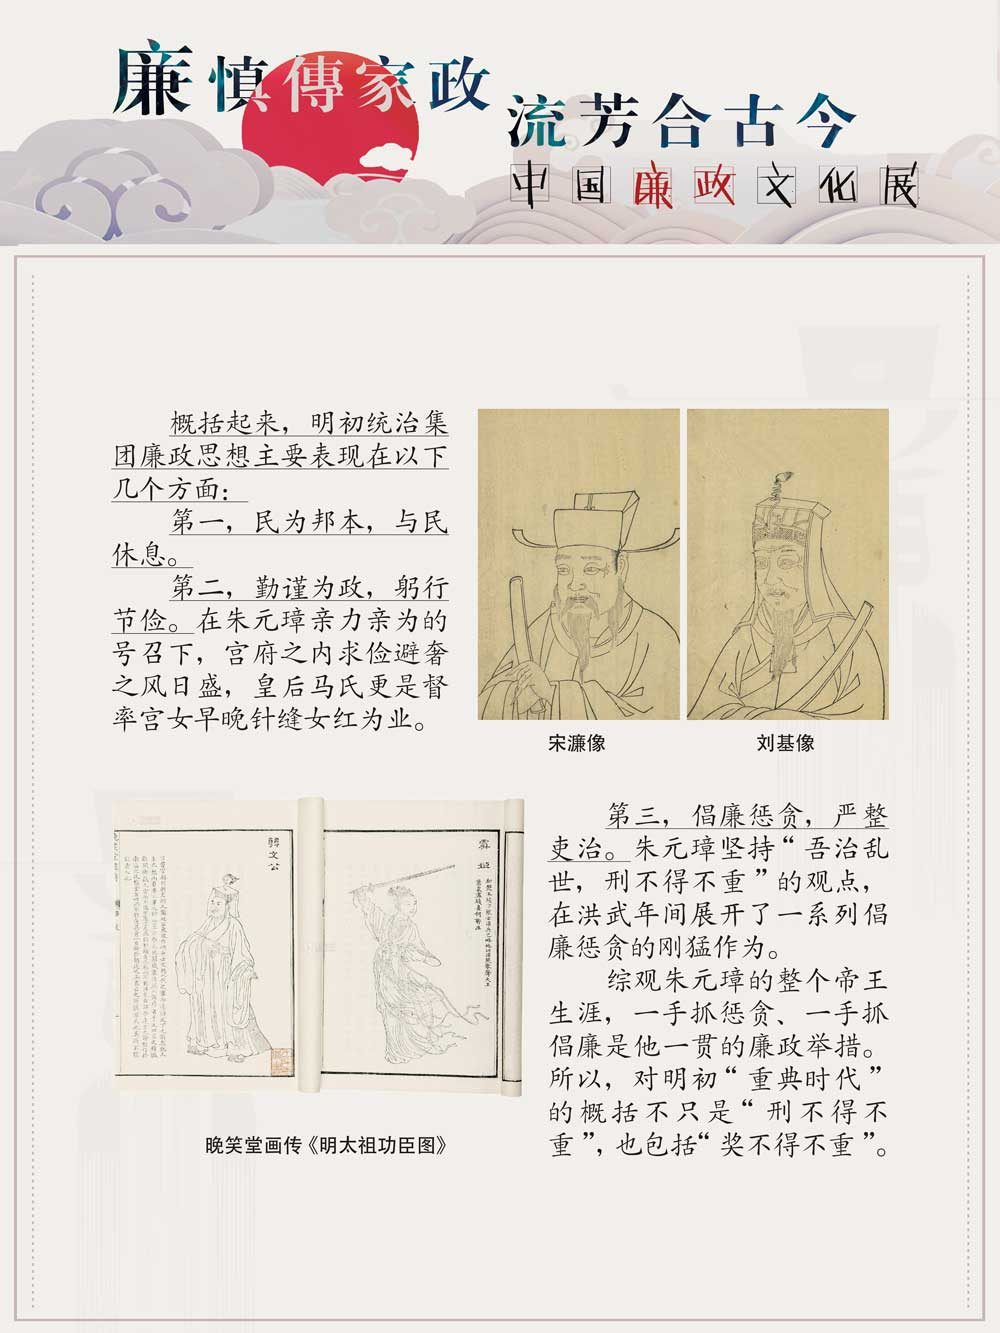 廉慎傳家政
流芳合古今
中国廉政文化展
概括起来，明初统治集
团廉政思想主要表现在以下
几个方面：
第一，民为邦本，与民
休息。
第二，勤谨为政，躬行
节俭。在朱元璋亲力亲为的
号召下，宫府之内求俭避奢
之风日盛，皇后马氏更是督
率宫女早晚针缝女红为业。
宋濂像
刘基像
韓文公
虞姬
晚笑堂画传《明太祖功臣图》
第三，倡廉惩贪，严整
吏治。朱元璋坚持“吾治乱
世，刑不得不重”的观点，
在洪武年间展开了一系列倡
廉惩贪的刚猛作为。
综观朱元璋的整个帝王
生涯，一手抓惩贪、一手抓
倡廉是他一贯的廉政举措。
所以，对明初“重典时代”
的概括不只是“刑不得不
重”，也包括“奖不得不重”。